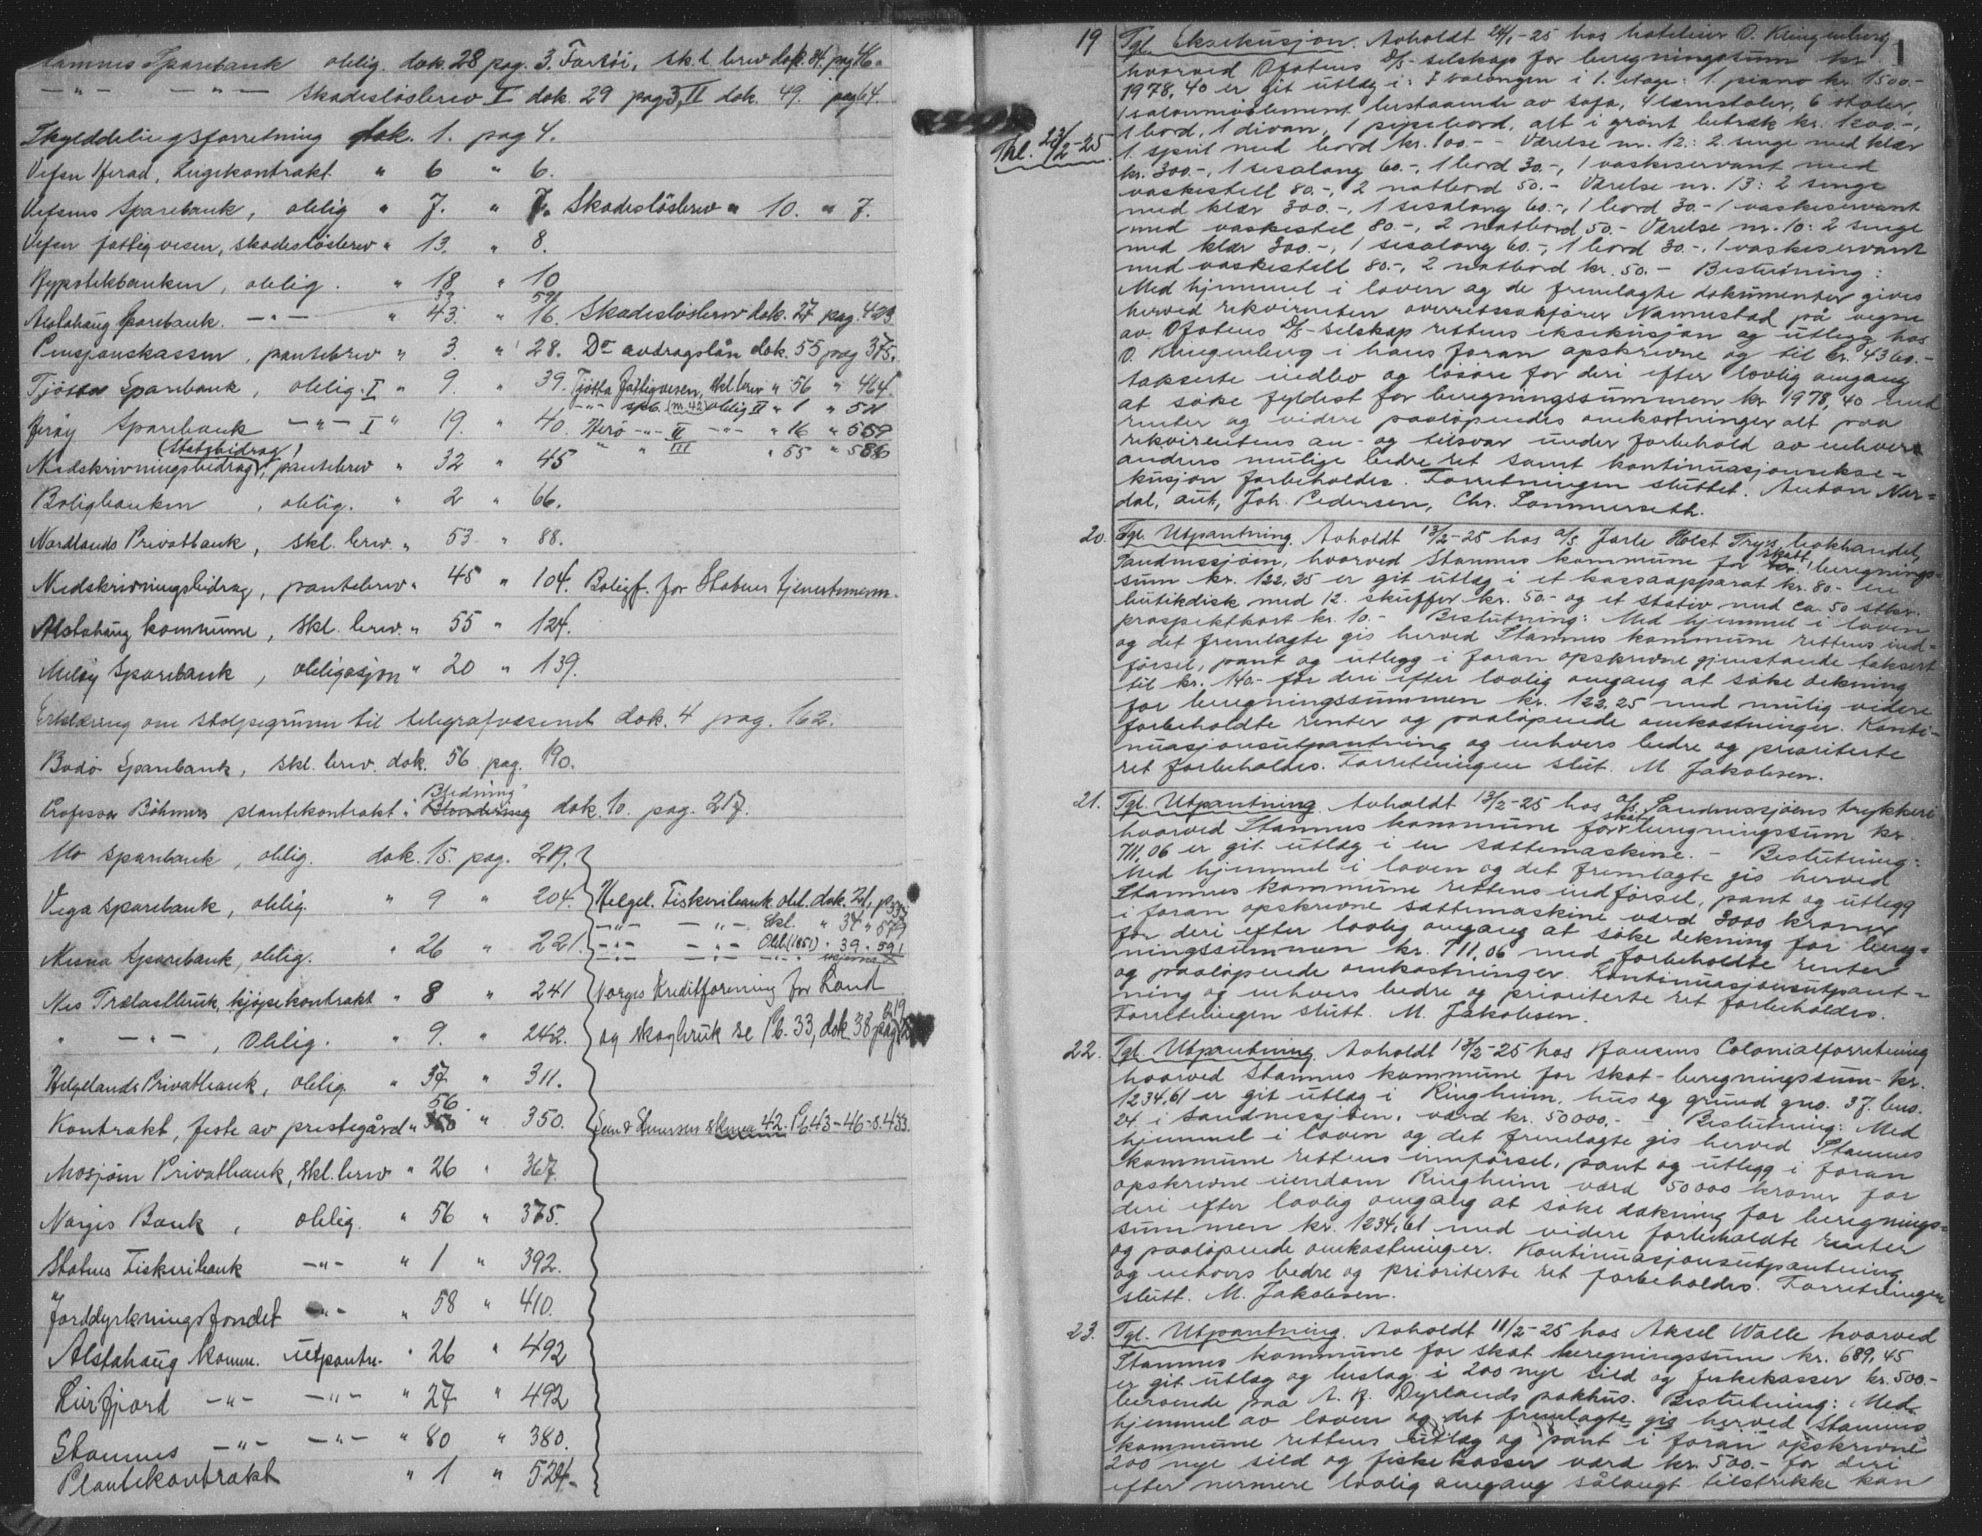 Stamnes Sparebank oblig. dok. 28 pag. 3. Fartøi, sk.l. brev dok. 34. pag 46.
—"— —"— Skadesløsbrev I dok. 29 pag 3, II dok. 49. pag 64.
Skylddelingsforretning dok. 1. pag 4.
Vefsn Herad, Leigekontrakt " 6 " 6.
Vefsens Sparebank, oblig " 7. " 7. Skadesløsbrev " 10. " 7.
Vefsn fattigvesen, skadesløsbrev " 13. " 8.
Hypotekbanken, oblig. " 18 " 10
Alstahaug Sparebank. —"— " 43. " 16. Skadesløsbrev dok. 27 pag. 429
Pensjonskassen, pantebrev " 3. " 28. Do avdragslån dok. 55 pag 375.
Tjøtta Sparebank, oblig. I " 9. " 39. Tjøtta fattigvesen, skl.brev " 56 " 464
—"— spb. (m. 42) oblig II " 1 " 511
Herøy Sparebank —"— I " 19. " 40. Herø —"— II —"— " 16 " 559
" " III " 55 " 556
(Statsbidrag)
Nedskrivningsbidrag, pantebrev " 32 " 45
Boligbanken, oblig. " 2 " 66.
Nordlands Privatbank, skl. brev " 53 " 88.
Nedskrivningsbidrag, pantebrev " 45 " 104. Boligf. for Statens tjenestemenn.
Alstahaug kommune, skl. brev. " 55 " 124.
Meløy Sparebank, obligasjon " 20 " 139.
Erklæring om stolpegrunn til telegrafvæsenet dok. 4 pag. 162.
Bodø Sparebank, skl. brev. dok. 56 pag. 190.
Professor Böhmers plantekontrakt dok. 10. pag. 217.
Mo Sparebank, oblig. dok. 15. pag. 219.
Vega Sparebank, oblig. " 9 " 204. Helgel. Fiskeribank obl. dok. 21, p 335
—"— —"— Skl. " 34 " 579
Nesna Sparebank, oblig. " 26 " 221. —"— —"— Obl. (1851) " 39 " 591
Nes Trælastbruk, kjøpekontrakt " 8 " 241 Norges Kreditforening for Land
" —"—, Oblig. " 9. " 242. og skogbruk se Pb. 33, dok 38 pag 219
Helgelands Privatbank, oblig " 37 " 311.
Kontrakt, feste av prestegård " 56 " 350.
Mosjøen Privatbank, skl. brev " 26 " 367.
Norges Bank, oblig. " 56 " 375.
Statens Fiskeribank —"— " 1 " 392.
Jorddyrkningsfondet —"— " 58 " 410.
Alstahaug komm. utpantn. " 26 " 492
Leirfjord —"— —"— " 27 " 492
Stamnes —"— —"— " 80 " 380.
Plantekontrakt " 1 " 524
1
19 Tgl. Eksekusjon. Avholdt 24/1-25 hos hoteleier O. Klingenberg
hvorved Ofotens D/S-selskap for beregningssum kr.
1978,40 er git utlæg i: I salongen i 1. etage: 1 piano kr. 1500.-
1 salonmøblement bestaaende av sofa, 4 lænstoler, 6 stoler,
1 bord, 1 divan, 1 pipebord, alt i grønt betræk kr. 1200.-,
Thl. 23/2-25.
1 speil med bord kr. 100.- - Værelse nr. 12: 2 senge med klær
kr. 300.-, 1 sesalong 60.-, 1 bord 30.-, 1 vaskeservant med
vaskestell 80.-, 2 natbord 50.- Værelse nr. 13: 2 senge
med klær 300.-, 1 sesalong 60.-, 1 bord 30.- 1 vaskeservant
med vaskestel 80.-, 2 natbord 50.- Værelse nr. 10: 2 senge
med klær 300.-, 1 sesalong 60.-, 1 bord 30.-, 1 vaskeservant
med vaskestell 80.-, 2 natbord kr. 50.- Beslutning:
Med hjemmel i loven og de fremlagte dokumenter gives
herved rekvirenten overretssakfører Nannestad på vegne
av Ofotens D/S-selskap rettens eksekusjon og utlegg hos
O. Klingenberg i hans foran opskrevne og til kr. 4360.-
takserte indbo og løsøre for deri efter lovlig omgang
at søke fyldest for beregningssummen kr 1978,40 med
renter og videre paaløpendes omkostninger alt paa
rekvirentens an- og tilsvar under forbehold av enhvers
andens mulige bedre ret samt kontinuasjonsekse-
kusjon forbeholdes. Forretningen sluttet. Anton Nor-
dal, aut, Joh. Pedersen, Chr. Sommerseth.
20. Tgl. Utpantning. Avholdt 13/2-25 hos A/S Jarle Holst Trys bokhandel,
Sandnessjøen, hvorved Stamnes kommune for skatt, beregnings-
sum kr. 122,25 er git utlæg i et kassaapparat kr. 80.- en
butikdisk med 12. skuffer kr. 50.- og et stativ med ca. 50 stkr.
prospektkort kr. 10.- Beslutning: Med hjemmel i loven
og det fremlagte gis herved Stamnes kommune rettens ind-
førsel, pant og utlegg i foran opskrevne gjenstande taksert
til kr. 140.- for deri efter lovlig omgang at søke dekning
for beregningssummen kr. 122,25 med mulig videre
forbeholdte renter og paaløpende omkostninger. Konti-
nuasjonsutpantning og enhvers bedre og prioriterte
ret forbeholdes. Forretningen slut. M. Jakobsen.
21. Tgl. Utpantning. Avholdt 13/2-25 hos A/S. Sandnessjøens trykkeri
hvorved Stamnes kommune for skatt beregningssum kr.
711,06 er git utlæg i en sættemaskine. - Beslutning:
Med hjemmel i loven og det fremlagte gis herved
Stamnes kommune rettens indførsel, pant og utlegg
i foran opskrevne sættemaskine værd 3000 kroner
for deri efter lovlig omgang at søke dekning for bereg-
ningssummen kr. 711,06 med forbeholdte renter
og paaløpende omkostninger. Kontinuasjonsutpant-
ning og enhvers bedre og prioriterte ret forbeholdes.
Forretningen slutt. M. Jakobsen.
22. Tgl. Utpantning. Avholdt 13/2-25 hos Hansens Colonialforretning
hvorved Stamnes kommune for skat-beregningssum-kr.
1234,61 er git utlæg i Ringheim, hus og grund gno. 37. bno.
24. i Sandnessjøen, værd kr. 50000.- Beslutning: Med
hjemmel i loven og det fremlagte gis herved Stamnes
kommune rettens innførsel, pant og utlegg i foran
opskrevne eiendom Ringheim værd 50000 kroner for
deri efter lovlig omgang at søke dækning for beregnings-
summen kr. 1234,61 med videre forbeholdte renter
og paaløpende omkostninger. Kontinuasjonsutpantning
og enhvers bedre og prioriterte ret forbeholdes. Forretningen
slutt. M. Jakobsen.
23. Tgl. Utpantning. Avholdt 11/2-25 hos Aksel Walle hvorved
Stamnes kommune for skat beregningssum kr. 689,45
er git utlæg og beslag i 200 nye sild og fiskekasser kr. 500.-
beroende paa A. R. Dyrlands pakhus. Beslutning: Med
hjemmel av loven og det fremlagte gis herved Stamnes
kommune rettens utlæg og pant i foran opskrevne
200 nye sild og fiskekasser værd kr. 500.- for deri
efter nermere lovlig omgang sålangt tilstrekke kan